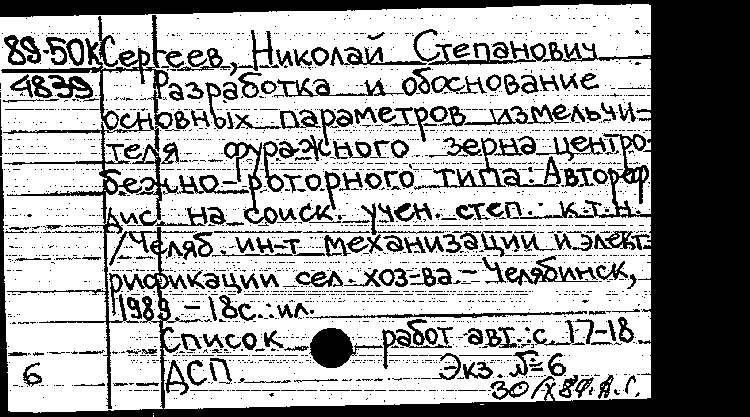 89-50К Сергеев, Николай Степанович
4839 Разработка и обоснование
основных параметров измельчи-
теля фуражного зерна центро-
бежно-роторного типа: Автореф.
дис. на соиск. учен. степ.: к.т.н.
/Челяб. ин-т механизации и элект-
рификации сел. хоз-ва. - Челябинск,
1989. - 18с.: ил.
Список работ авт.: с. 17-18
6 ДСП. Экз. №6
30/X 89. А.С.